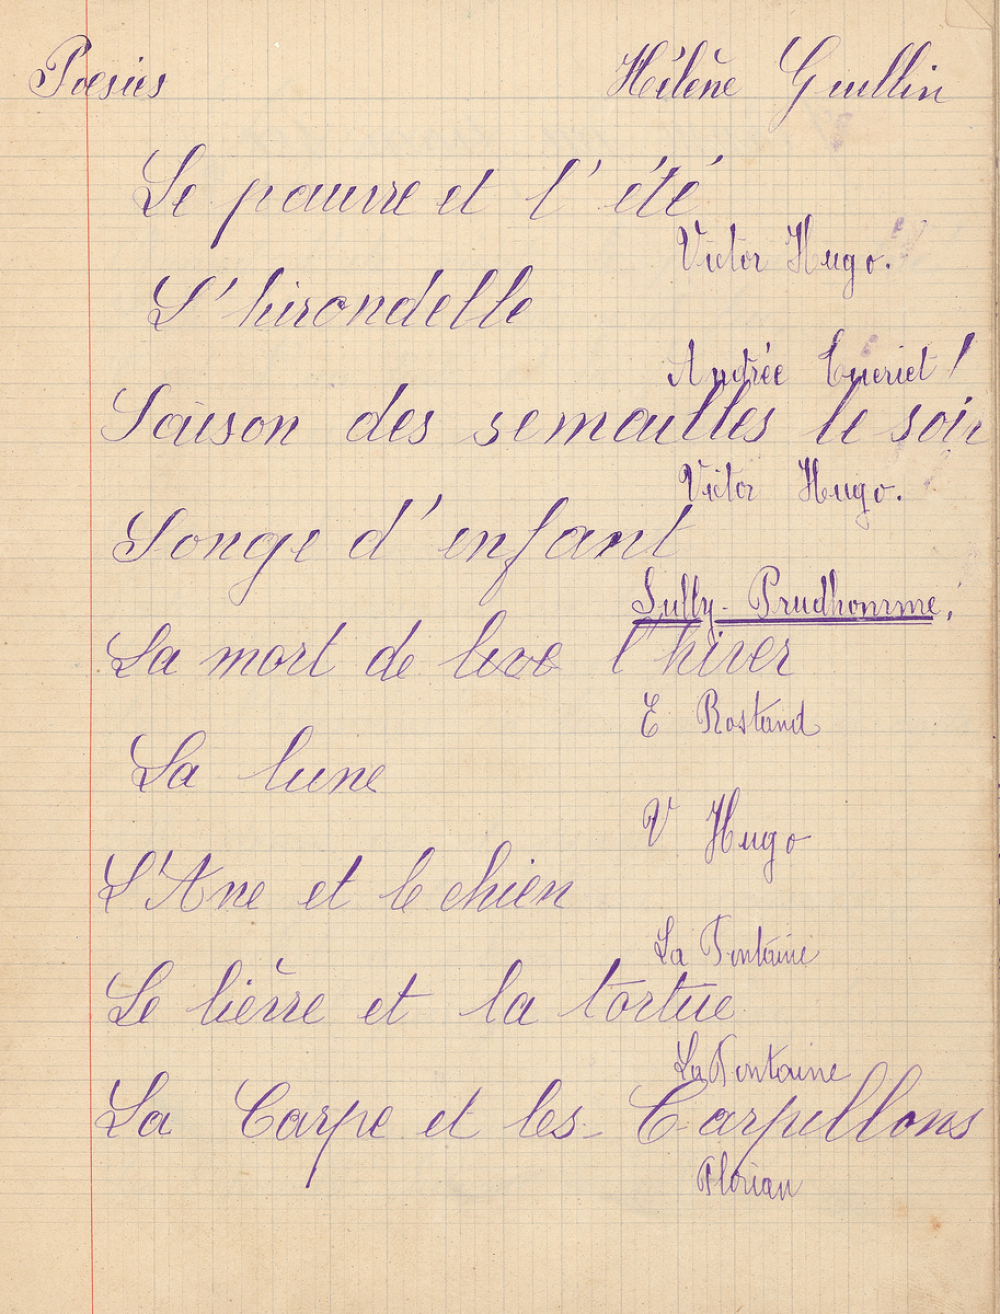 Poésies Hélène Guellin
Le pauvre et l'été
Victor Hugo.
L'hirondelle
Andrée
Saison des semailles le soir
Victor Hugo.
Songe d'enfant
Sully-Prudhomme.
La mort de l'hiver
E Rostand
La lune
V Hugo
L'Ane et le chien
La Fontaine
Le lièvre et la tortue
La Fontaine
La Carpe et les Carpillons
Florian